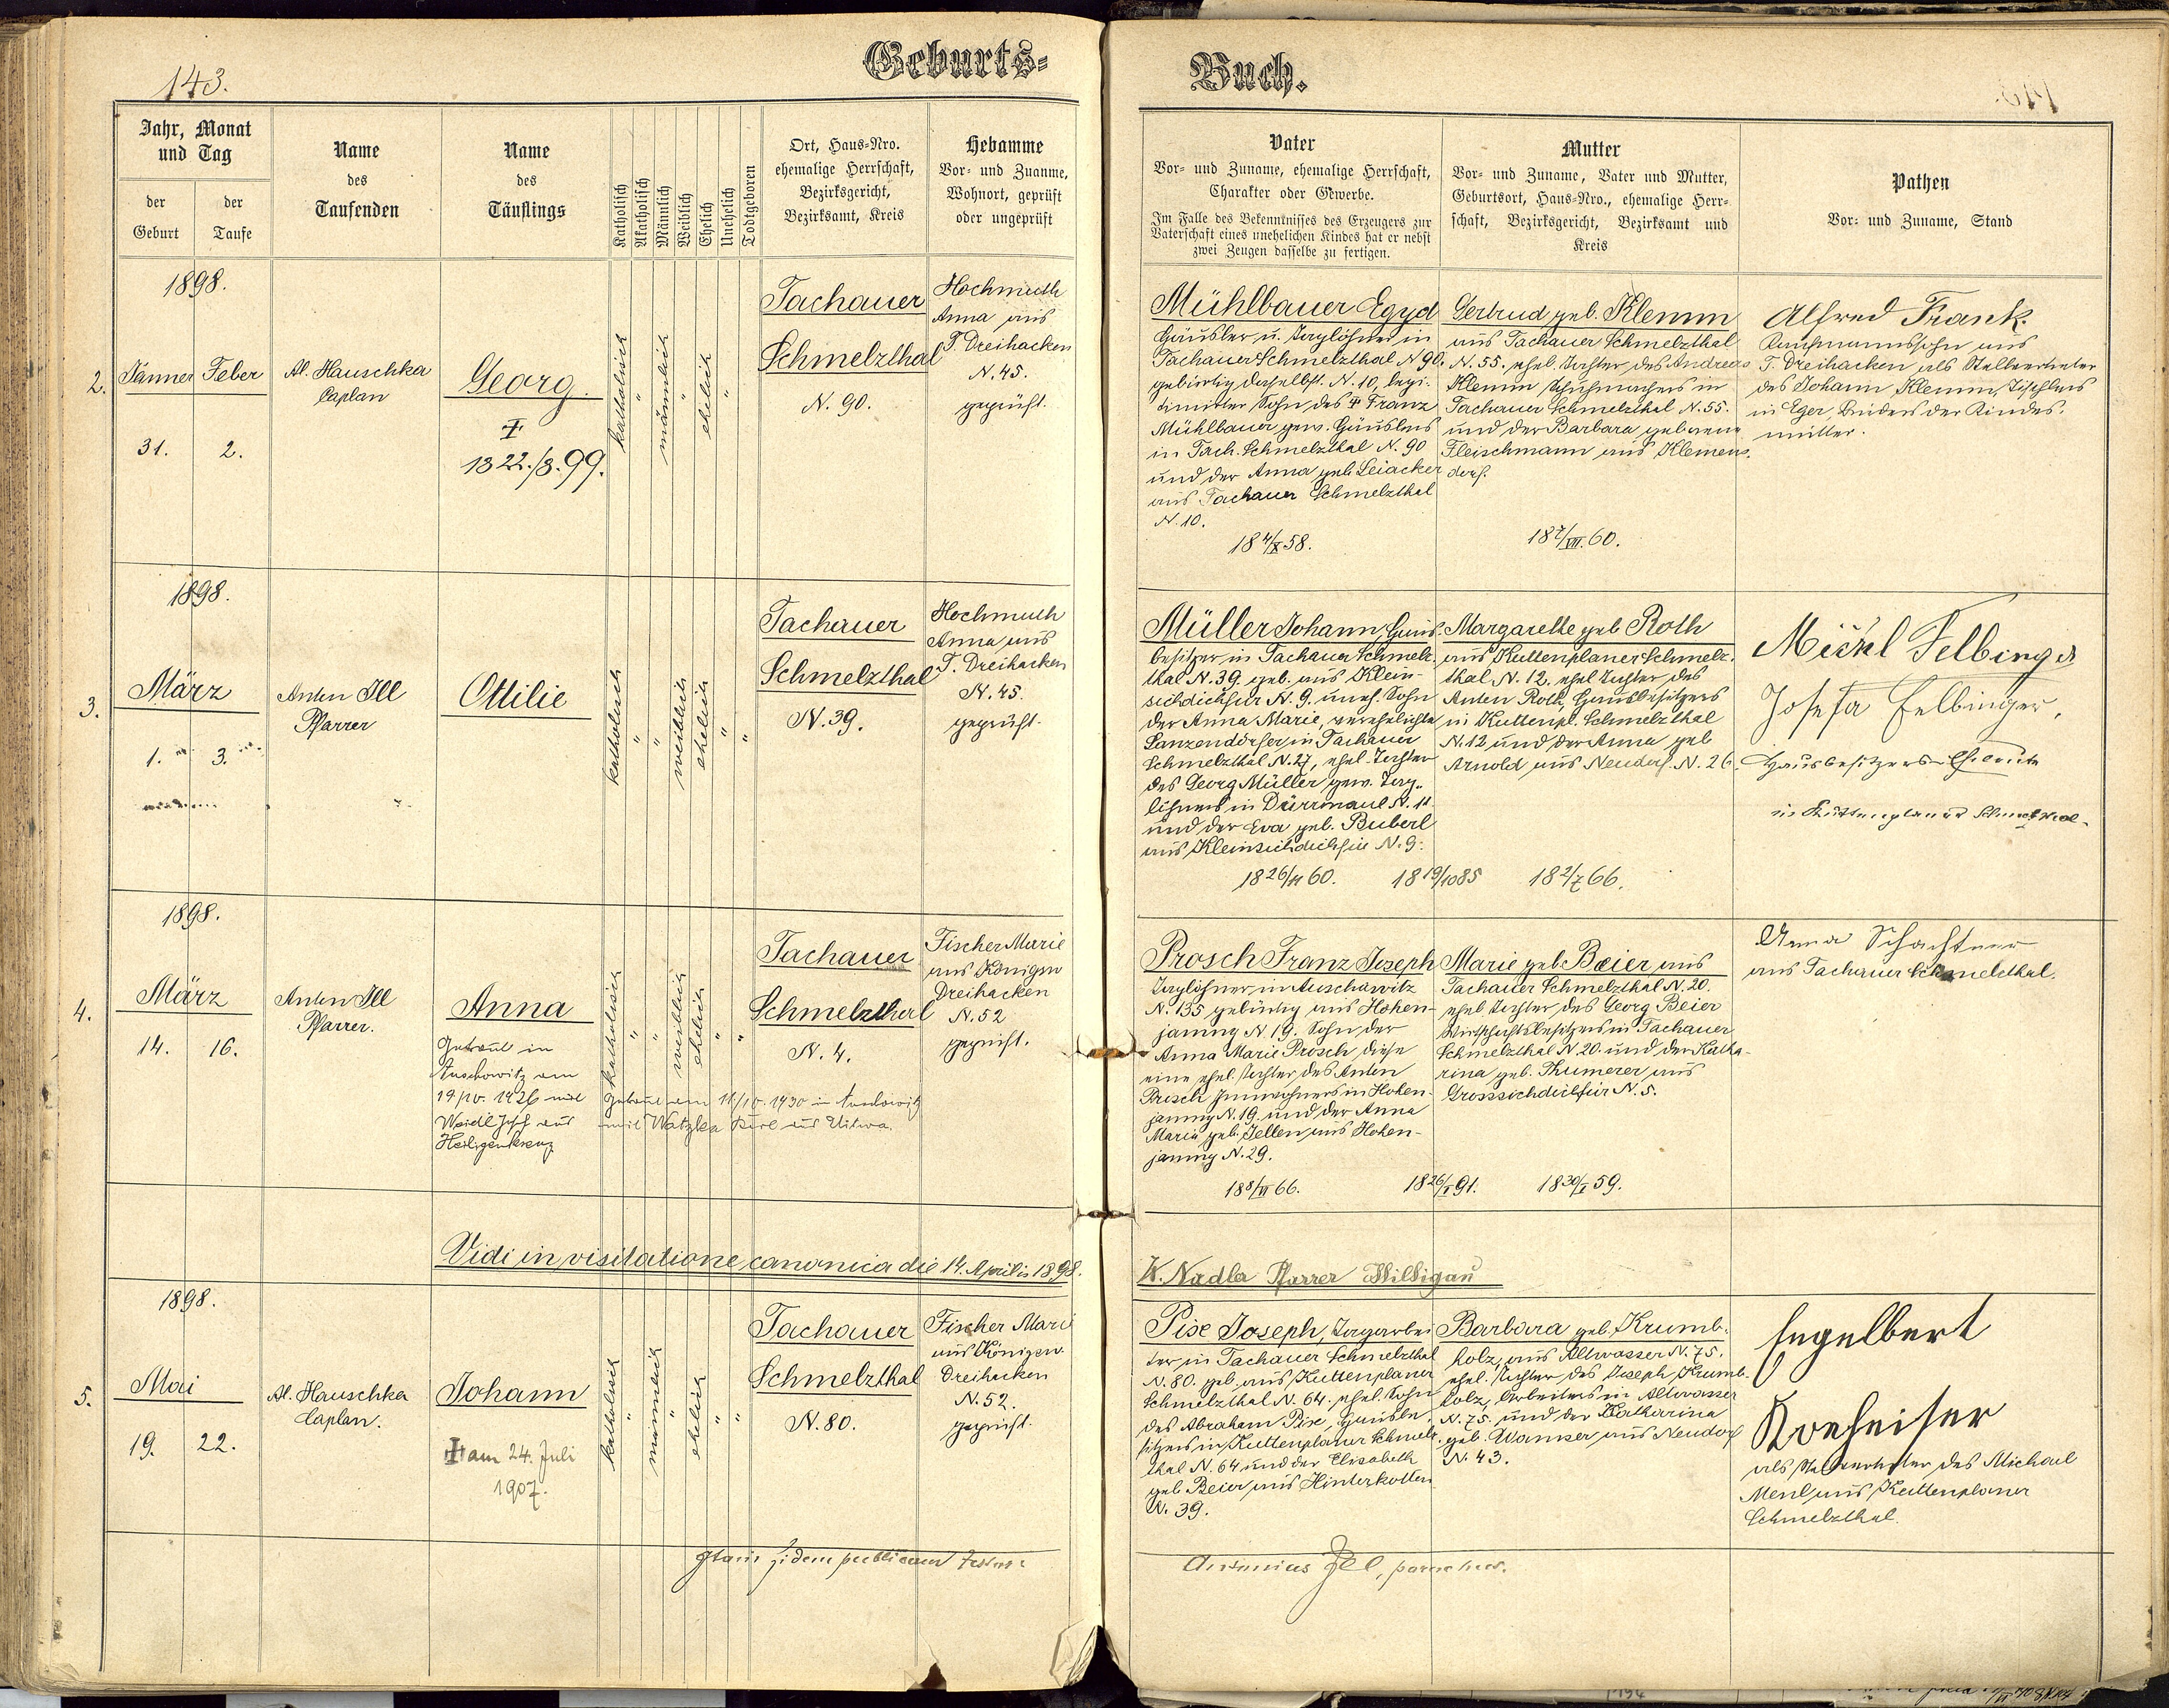 143.
Geburts=
Buch.
Jahr, Monat
und Tag
der
Geburt
der
Taufe
Name
des
Taufenden
Name
des
Täuflings
Katholisch
Akatholisch
Männlich
Weiblich
Ehelich
Unehelich
Todtgeboren
Ort, Haus=Nro.
ehemalige Herrschaft,
Bezirksgericht,
Bezirksamt, Kreis
Hebamme
Vor= und Zuanme,
Wohnort, geprüft
oder ungeprüft
Vater
Vor= und Zuname, ehemalige Herrschaft,
Charakter oder Gewerbe.
Im Falle des Bekenntnisses des Erzeugers zur
Vaterschaft eines unehelichen Kindes hat er nebst
zwei Zeugen dasselbe zu fertigen.
Mutter
Vor= und Zuname, Vater und Mutter,
Geburtsort, Haus=Nro., ehemalige Herr=
schaft, Bezirksgericht, Bezirksamt und
Kreis
Pathen
Vor= und Zuname, Stand
1898.
2.
Jänner
Feber
31.
2.
Al. Hauschka
Caplan
Georg.
1822./3.99.
katholisch
"
männlich
"
ehelich
"
Tachauer
Schmelzthal
N. 90.
Hochmuth
Anna aus
T. Dreihacken
N. 45.
geprüft.
Mühlbauer Egyd
Häusler u. Taglöhner in
Tachauer Schmelzthal N 90.
gebürtig daselbst. N. 10, legi-
timirter Sohn des Franz
Mühlbauer gew. Häuslers
in Tach. Schmelzthal N. 90
und der Anna geb. Leiacker
aus Tachauer Schmelzthal
N. 10.
18 4/X 58.
Gertrud geb. Klemm
aus Tachauer Schmelzthal
N. 55. ehel. Tochter des Andreas
Klemm Schuhmachers in
Tachauer Schmelzthal N. 55.
und der Barbara geborene
Fleischmann aus Klemens-
dorf.
18 7/VII. 60.
Alfred Frank.
Kaufmannssohn aus
T. Dreihacken als Stellvertreter
des Johann Klemm, Tischlers
in Eger, Bruders der Kindes-
mutter.
1898.
3.
März
1.
3.
Anton Ill
Pfarrer
Ottilie
katholisch
"
"
weiblich
ehelich
"
"
Tachauer
Schmelzthal
N. 39.
Hochmuth
Anna aus
T. Dreihacken
N. 45.
geprüft.
Müller Johann, Haus-
besitzer in Tachauer Schmelz-
thal N. 39. geb. aus Klein-
sichdichfür N. 9. uneh. Sohn
der Anna Marie, verehelichte
Lanzendörfer in Tachauer
Schmelzthal N. 27, ehel. Tochter
des Georg Müller gew. Tag-
löhners in Dürrmaul N. 11.
und der Eva geb. Buberl
aus Kleinsichdichfür N. 9.
18 26/11 60.
18 19/10 85
Margarethe geb Roth
aus Kuttenplaner Schmelz-
thal N. 12. ehel Tochter des
Anton Roth, Hausbesitzers
in Kuttenpl. Schmelzthal
N. 12 und der Anna geb
Arnold aus Neudorf. N. 26
18 2/7 66.
Michl Felbinger
Josefa Felbinger,
Hausbesitzers-Eheleute
in Kuttenplaner Schmelzthal.
1898.
4.
März
14.
16.
Anton Ill
Pfarrer.
Anna
Getraut in
Auschowitz am
19/IV. 1926 mit
Weidl Josef aus
Heiligenkreuz
Getraut am 11/10. 1930 in Auschowitz
mit Watzka Karl aus Utwa.
katholisch
"
"
weiblich
ehelich
"
"
Tachauer
Schmelzthal
N. 4.
Fischer Marie
aus Königsw
Dreihacken
N. 52
geprüft.
Prosch Franz Joseph
Taglöhner in Auschowitz
N. 135 gebürtig aus Hohen-
jamny N 19. Sohn der
Anna Marie Prosch, diese
eine ehel. Tochter des Anton
Prosch Innwohners in Hohen-
jamny N. 19. und der Anna
Maria geb. Zellen aus Hohen-
jamny N. 29.
18 8/VI 66.
18 26/I 91.
Marie geb. Beier aus
Tachauer Schmelzthal N. 20.
ehel Tochter des Georg Beier
Wirthschaftsbesitzers in Tachauer
Schmelzthal N. 20. und der Katha-
rina geb. Kumerer aus
Grosssichdichfür N. 5.
18 30/I 59.
Anna Schachtner
aus Tachauer Schmelzthal.
Vidi in visitatione canonica die 14. Aprilis 1898.
K. Nadler Pfarrer
1898.
5.
Mai
19.
22.
Al. Hauschka
Caplan.
Johann
am 24. Juli
1907.
katholisch
"
männlich
"
ehelich
"
"
Tachauer
Schmelzthal
N. 80.
Fischer Marie
aus Königsw.
Dreihacken
N. 52.
geprüft.
Pise Joseph, Tagarbei
ter in Tachauer Schmelzthal
N. 80. geb. aus Kuttenplaner
Schmelzthal N. 64. ehel. Sohn
des Abraham Pise, Hausbe-
sitzers in Kuttenplaner Schmelz-
thal N. 64 und der Elisabeth
geb Beier aus Hinterkotten
N. 39.
Barbara geb. Krumb-
holz, aus Altwasser N. 75.
ehel. Tochter des Joseph Krumb-
holz, Arbeiters in Altwasser
N. 75. und der Katharina
geb. Wamser aus Neudorf
N. 43.
Engelbert
Koeheiser
als Stellvertreter des Michael
Menl aus Kuttenplaner
Schmelzthal.
fidem publicam
Antonius Ill, parochus.